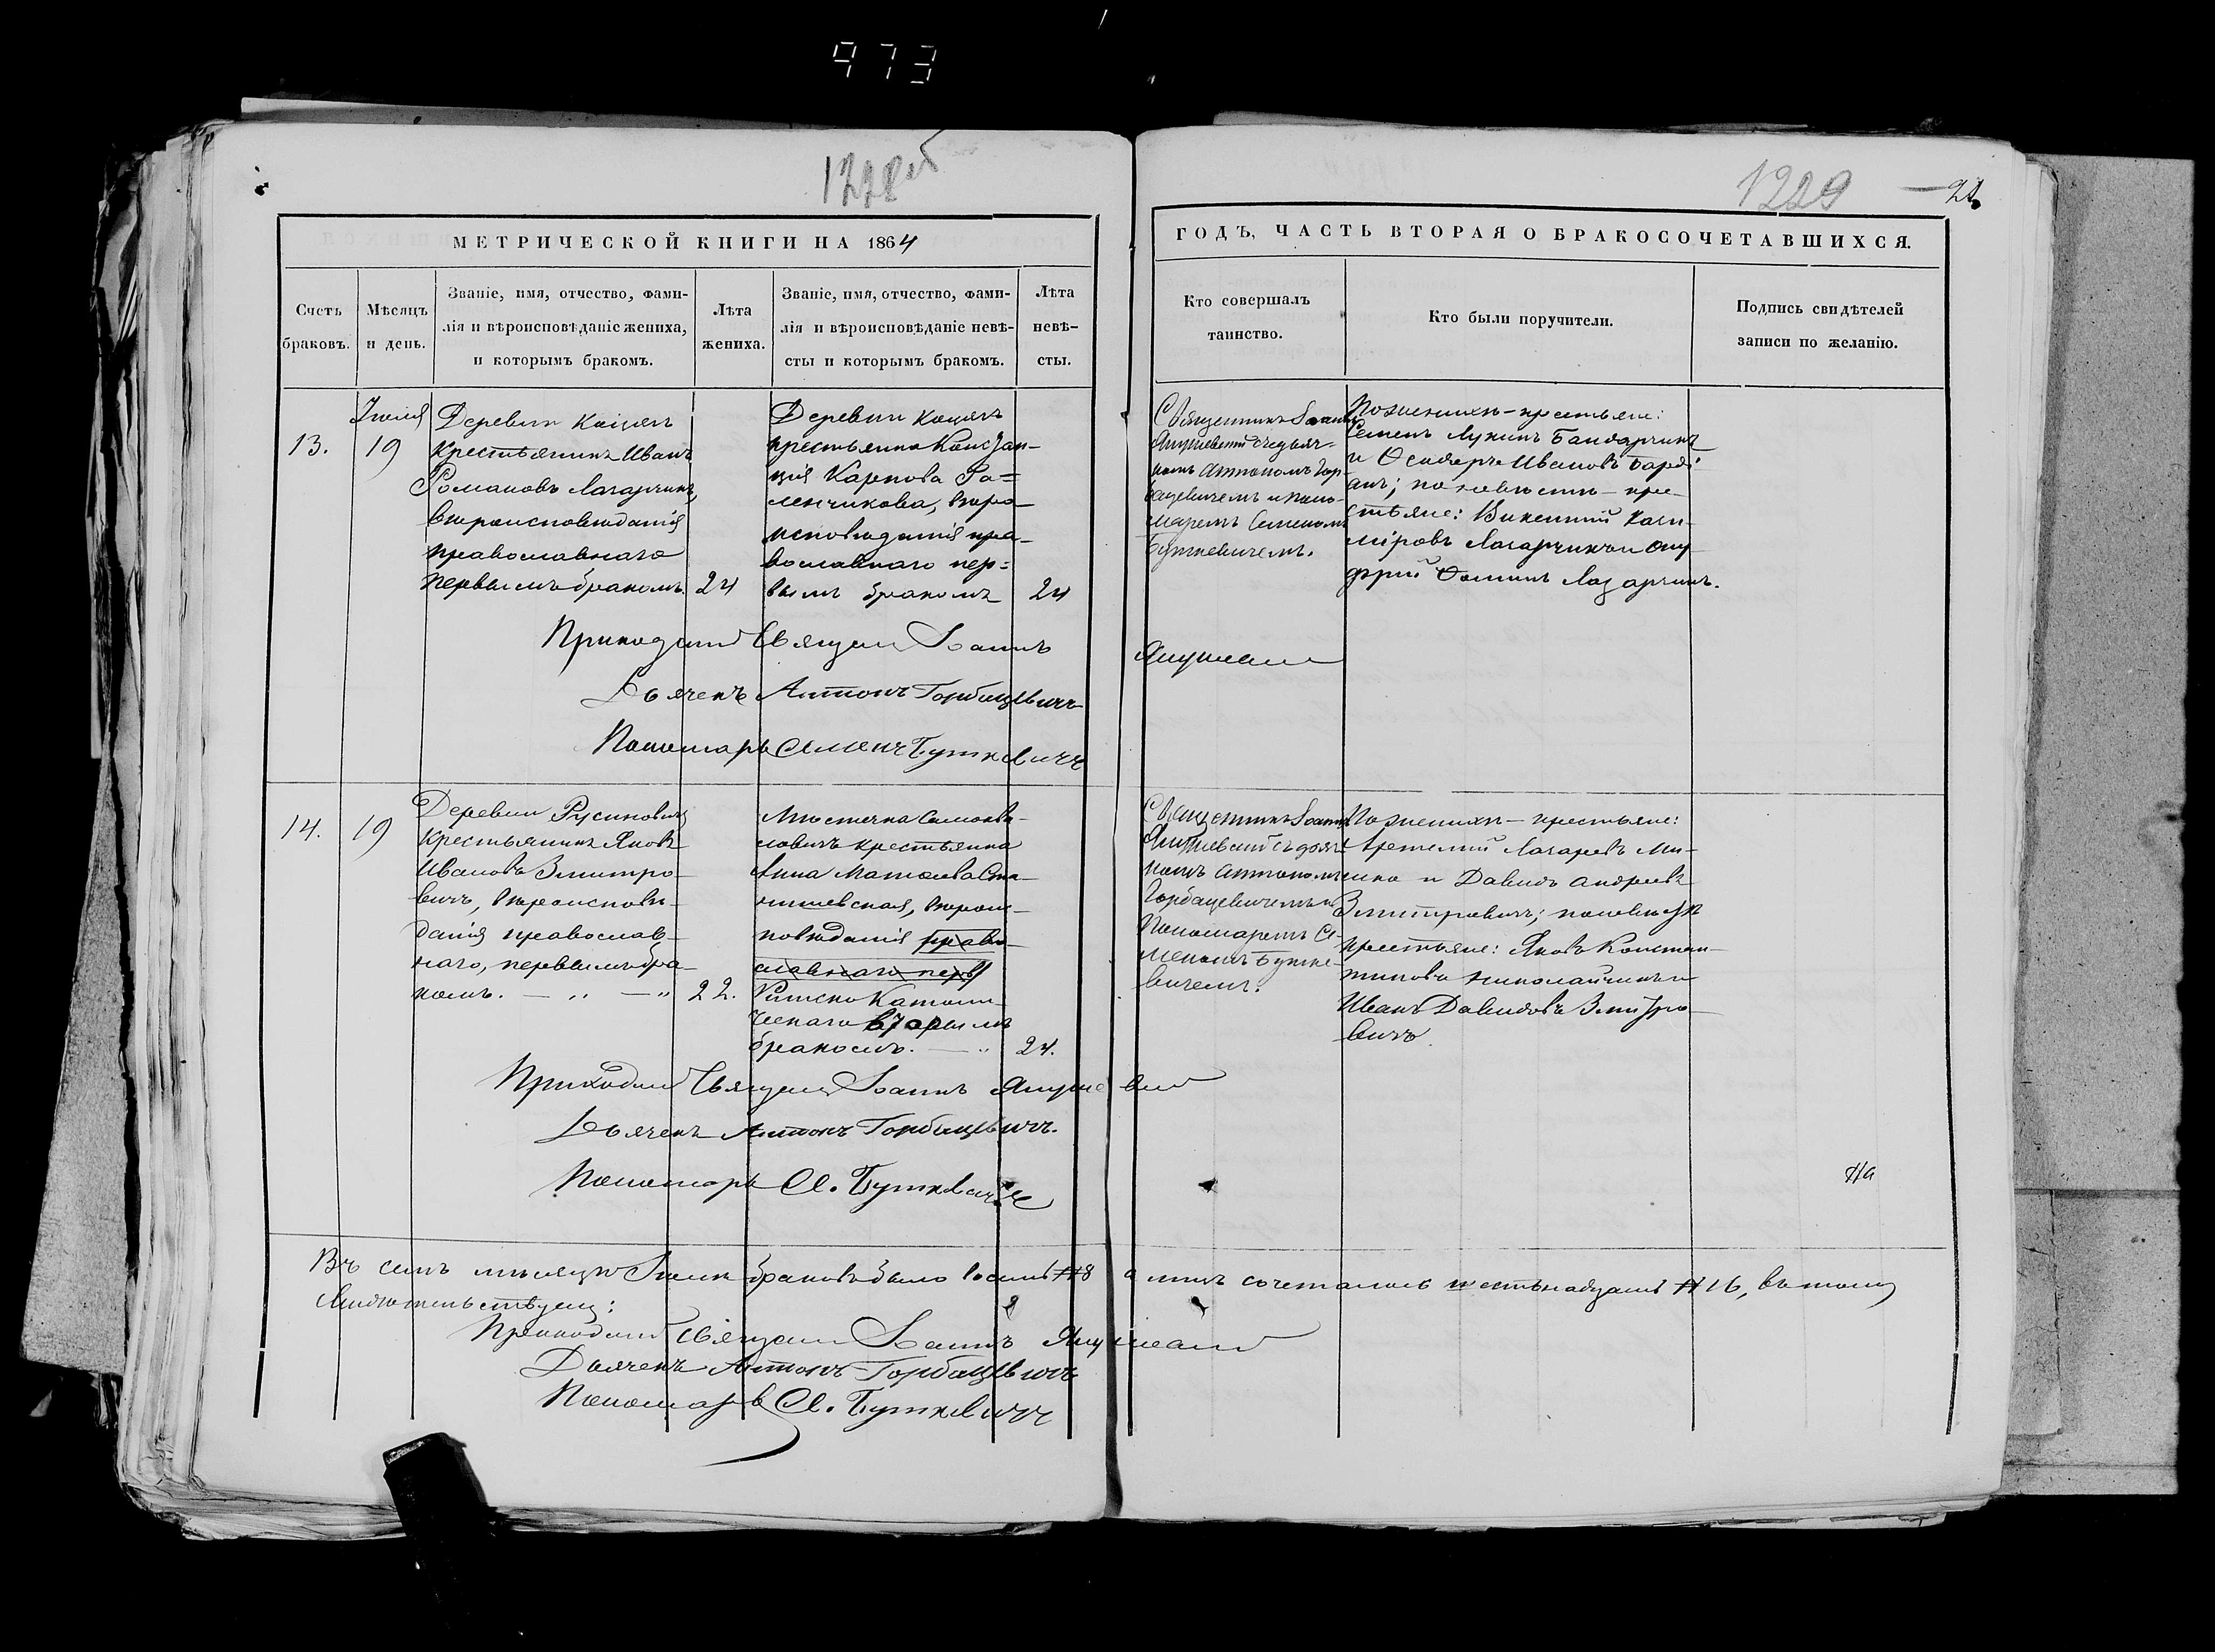 973
1228об
1229
МЕТРИЧЕСКОЙ КНИГИ НА 1864
Счетъ браковъ.
Мѣсяцъ и день.
Званіе, имя, отчество, фами-
лія и вѣроисповѣданіе жениха,
и которымъ бракомъ.
Лѣта
жениха.
Званіе, имя, отчество, фами-
лія и вѣроисповѣданіе невѣ-
сты и которымъ бракомъ.
Лѣта
невѣ-
сты.
ГОДЪ, ЧАСТЬ ВТОРАЯ О БРАКОСОЧЕТАВШИХСЯ.
Кто совершалъ
таинство.
Кто были поручители.
Подпись свидѣтелей
записи по желанію.
13.
Іюля
19
Деревни
крестьянинъ Иванъ
Романовъ Лазарчикъ,
вѣроисповѣданія
православнаго
первымъ бракомъ.
24
Деревни
крестьянка Констан-
ція Карпова Ра=
менчикова, вѣро-
исповѣданія пра-
вославнаго пер=
вымъ бракомъ
24
Священникъ Іоаннъ
съ дьяч=
комъ Антономъ Гор-
бацевичемъ и поно-
маремъ Семеномъ
Буткевичемъ.
По женихѣ - крестьяне:
Семенъ Лукинъ Бандарчикъ
и Ивановъ
по невѣстѣ - кре-
стьяне: Викентій Кази-
міровъ Лазарчикъ и Ону-
фрій Ѳоминъ Лазарчикъ.
Приходскій Священ Іоаннъ
Дьячекъ Антонъ Горбацевичъ
Пономарь Семенъ Буткевичъ
14.
19
Деревни Русиновичъ
крестьянинъ Яковъ
Ивановъ Змитро-
вичъ, вѣроисповѣ-
данія православ-
наго, первымъ бра-
комъ. — " — "
22.
Мѣстечка Самохва-
ловичъ крестьянка
Анна Матѳеева Ста-
нишевская, вѣроис-
повѣданія право-
славнаго перв
Римско Католи-
ческаго вторымъ
бракомъ. — "
24.
Священникъ Іоаннъ
съ дьяч-
комъ Антономъ
Горбацевичемъ и
Пономаремъ Се-
меномъ Буткe-
вичемъ.
По женихѣ - крестьяне:
Лазаревъ Ми-
и Давидъ Андреевъ
Змитровичъ; по невѣстѣ
крестьяне: Яковъ Констан-
тиновъ Николайчикъ и
Иванъ Давидовъ Змитро-
вичъ.
Приходскій Священ Іоаннъ
Дьячекъ Антонъ Горбацевичъ.
Пономарь Се. Буткевичъ
На
Въ семъ мѣсяцѣ Іюлѣ браковъ было восемь # 8 а лицъ сочеталось шестьнадцать # 16, въ томъ
свидѣтельствуемъ:
Приходскій Священ Іоаннъ
Дьячекъ Антонъ Горбацевичъ
Пономарь Се. Буткевичъ